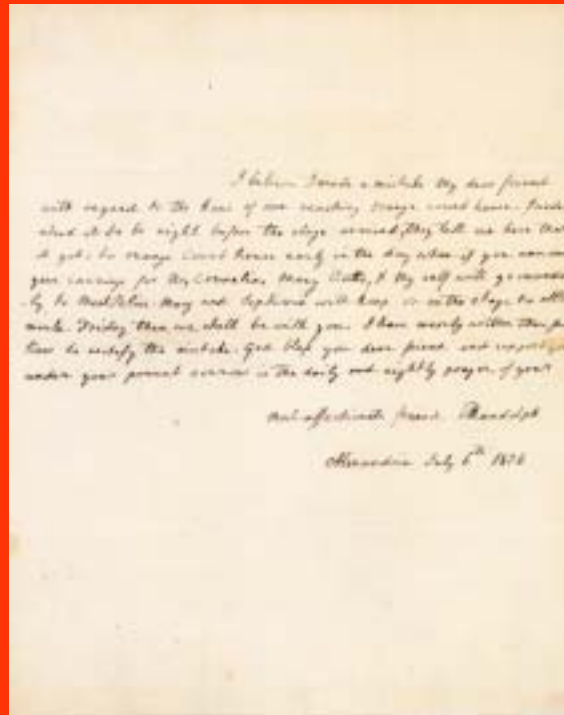 I believe I made a mistake my dear friend
with regard to the hour of our reaching Orange court house. I
it to be night before the stage arrived, they tell me here that
it gets to Orange Court House early in the day when if you can
your carriage for Mrs Cornelia, Mary & my self will
by to Montpelier Mary and Septimia will keep on in the stage to
Friday then we shall be with you. I have merely written these
lines to rectify the mistake. God bless you dear friend and support you
under your present sorrow is the daily and nightly prayer of your
most affectionate friend Randolph
Alexandria July 6th 1836